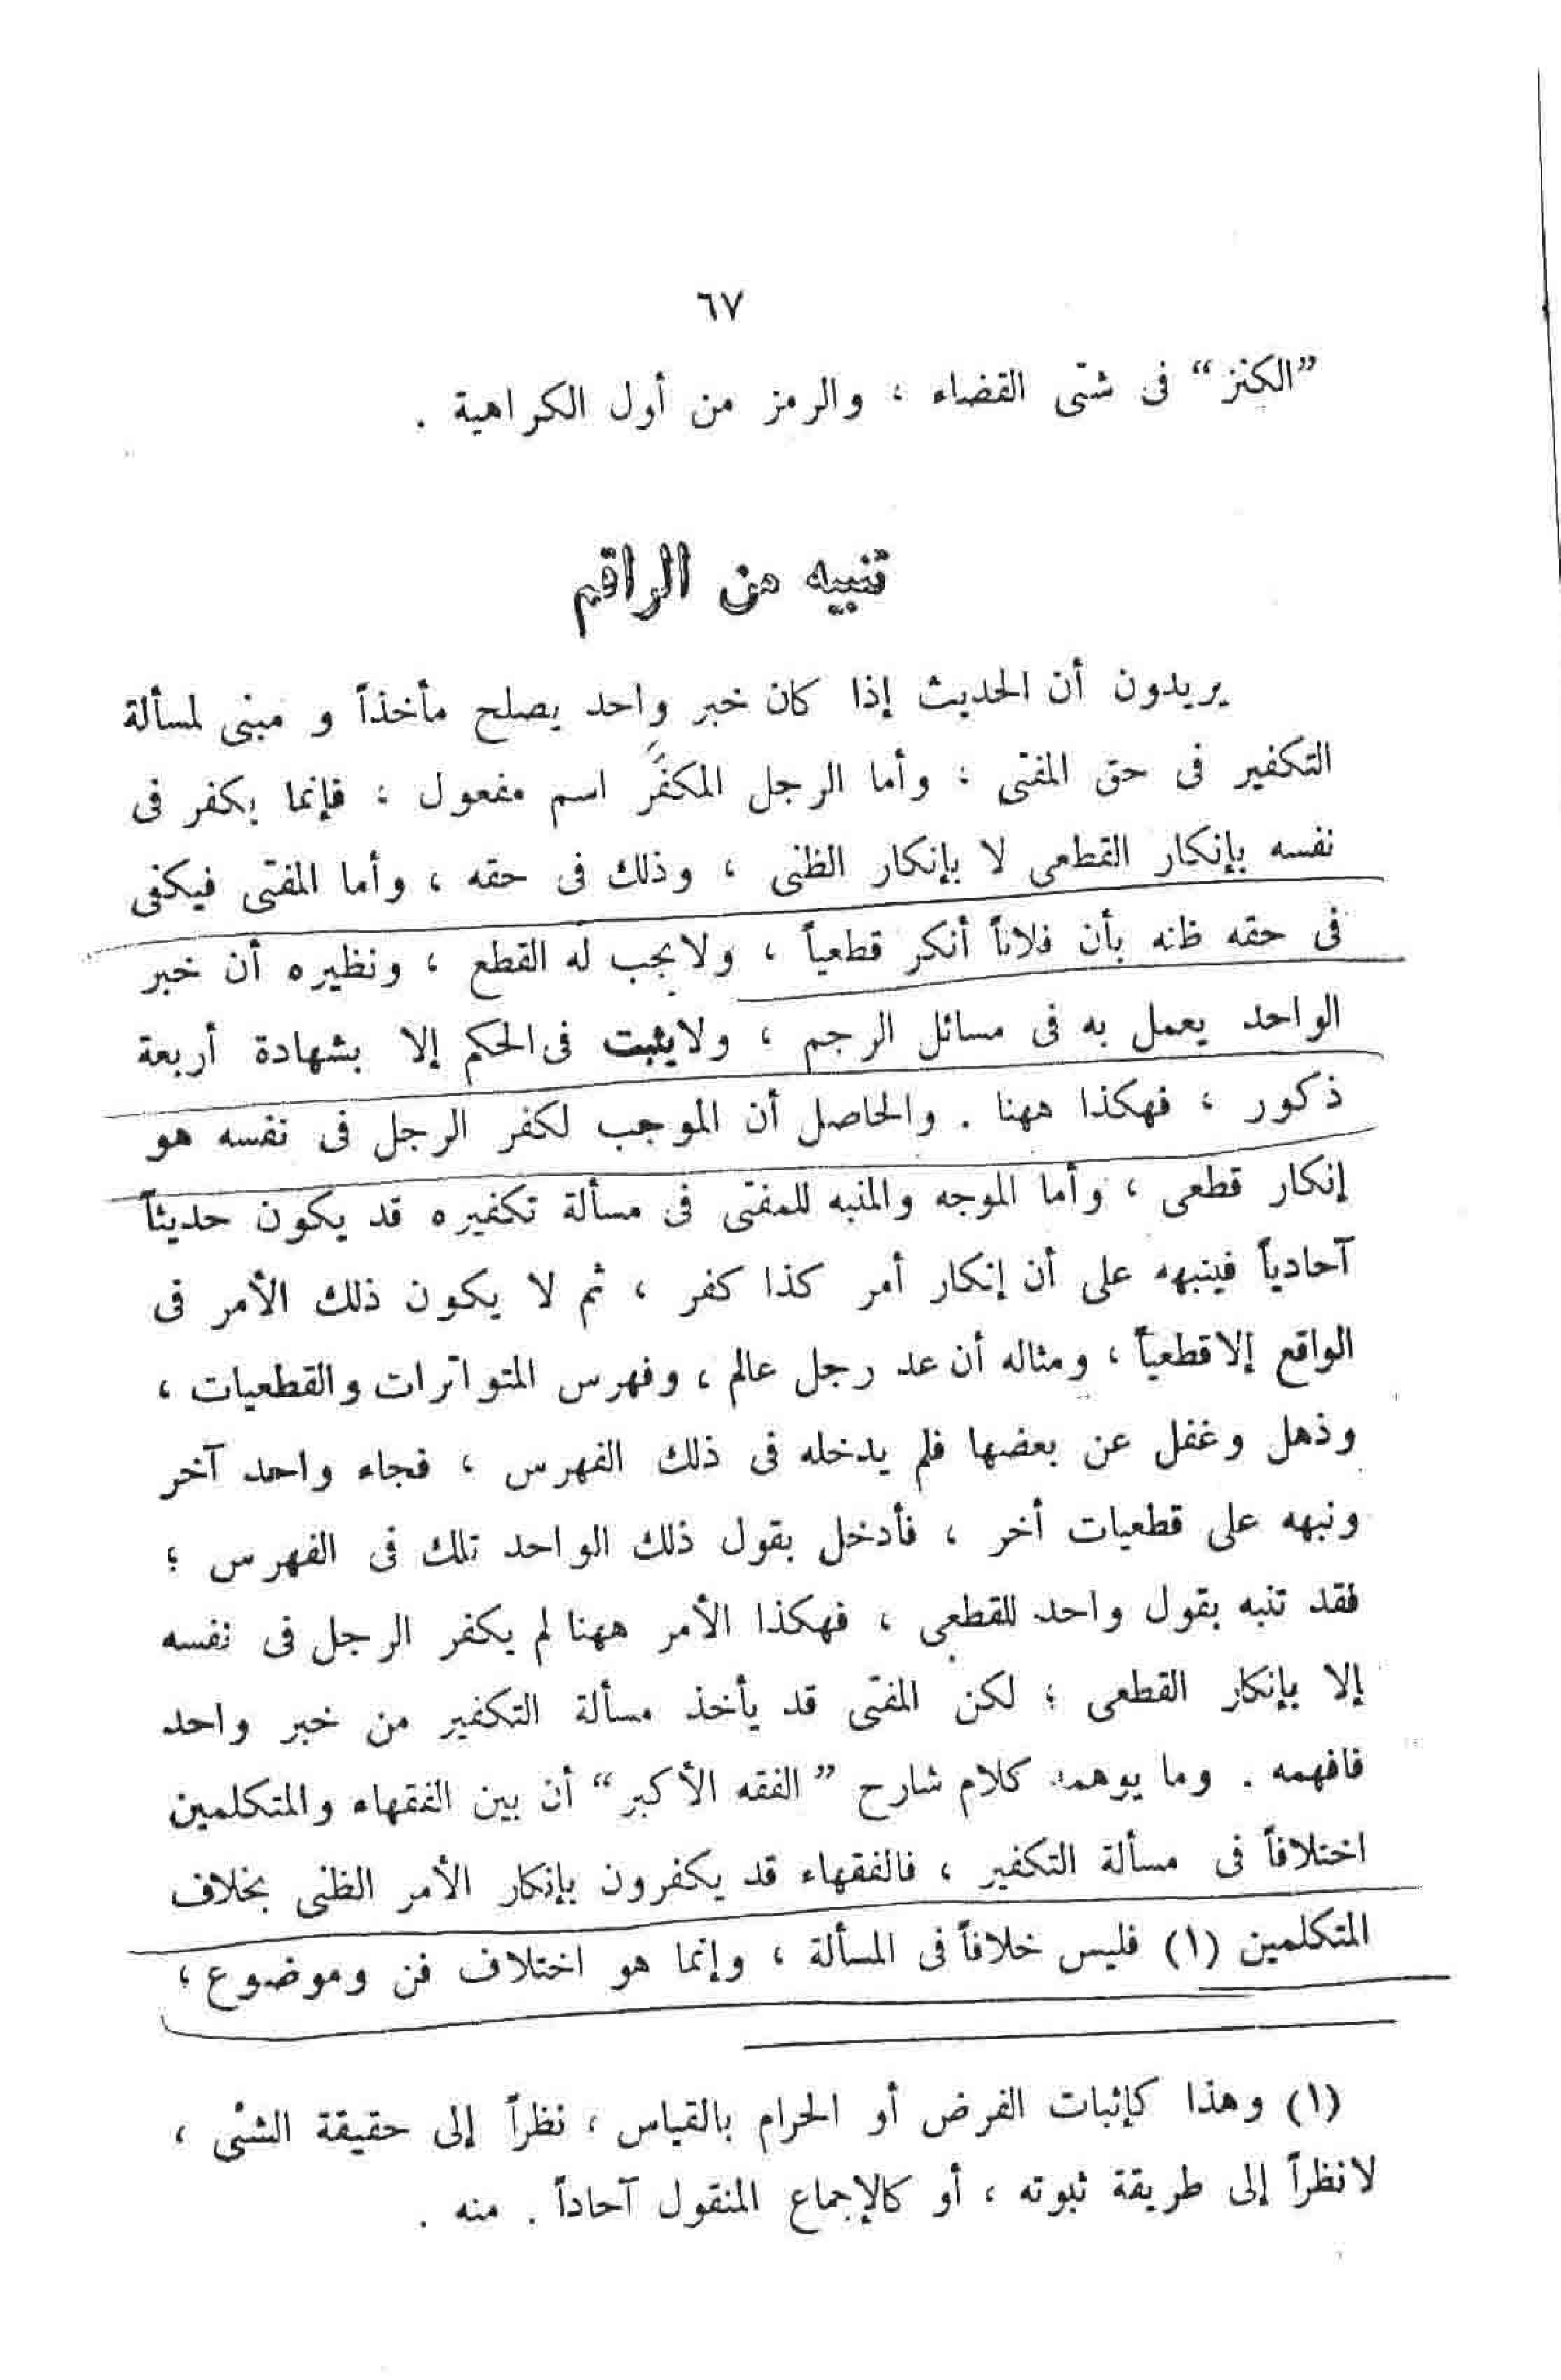 ٦٧
”الكنز“ فى شتى القضاء ، والرمز من أول الكراهية .
تنبيه من الراقم
يريدون أن الحديث إذا كان خبر واحد يصلح مأخذاً و مبنى لمسألة
التكفير فى حق المفتى ؛ وأما الرجل المكفَّر اسم مفعول ؛ فإنما يكفر فى
نفسه بإنكار القطعى لا بإنكار الظنى ، وذلك فى حقه ، وأما المفتى فيكفى
فى حقه ظنه بأن فلاناً أنكر قطعياً ، ولايجب له القطع ، ونظيره أن خبر
الواحد يعمل به فى مسائل الرجم ، ولايثبت فى الحكم إلا بشهادة أربعة
ذكور ، فهكذا ههنا . والحاصل أن الموجب لكفر الرجل فى نفسه هو
إنكار قطعى ، وأما الموجه والمنبه للمفتى فى مسألة تكفيره قد يكون حديثاً
آحادياً فينبهه على أن إنكار أمر كذا كفر ، ثم لا يكون ذلك الأمر فى
الواقع إلا قطعياً ، ومثاله أن عد رجل عالم ، وفهرس المتواترات والقطعيات ،
وذهل وغفل عن بعضها فلم يدخله فى ذلك الفهرس ، فجاء واحد آخر
ونبهه على قطعيات أخر ، فأدخل بقول ذلك الواحد تلك فى الفهرس ؛
فقد تنبه بقول واحد للقطعى ، فهكذا الأمر ههنا لم يكفر الرجل فى نفسه
إلا بإنكار القطعى ؛ لكن المفتى قد يأخذ مسألة التكفير من خبر واحد
فافهمه . وما يوهمه كلام شارح ” الفقه الأكبر “ أن بين الفقهاء والمتكلمين
اختلافاً فى مسألة التكفير ، فالفقهاء قد يكفرون بإنكار الأمر الظنى بخلاف
المتكلمين (١) فليس خلافاً فى المسألة ، وإنما هو اختلاف فن وموضوع ؛
(١) وهذا كإثبات الفرض أو الحرام بالقياس ، نظراً إلى حقيقة الشئى ،
لانظراً إلى طريقة ثبوته ، أو كالإجماع المنقول آحاداً . منه .